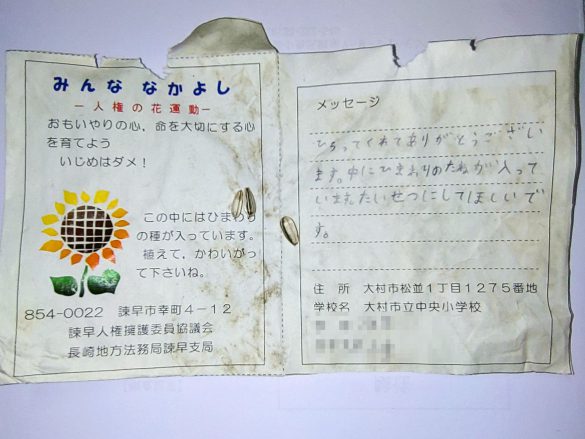 みんな なかよし
－人権の花運動－
おもいやりの心，命を大切にする心
を育てよう
いじめはダメ！
この中にはひまわり
の種が入っています。
植えて、かわいがっ
て下さいね。
854-0022 諫早市幸町４－１２
諫早人権擁護委員協議会
長崎地方法務局諫早支局
メッセージ
ひろってくれてありがとうござい
ます。中にひまわりのたねが入って
います。たいせつにしてほしいで
す。
住 所 大村市松並１丁目１２７５番地
学校名 大村市立中央小学校